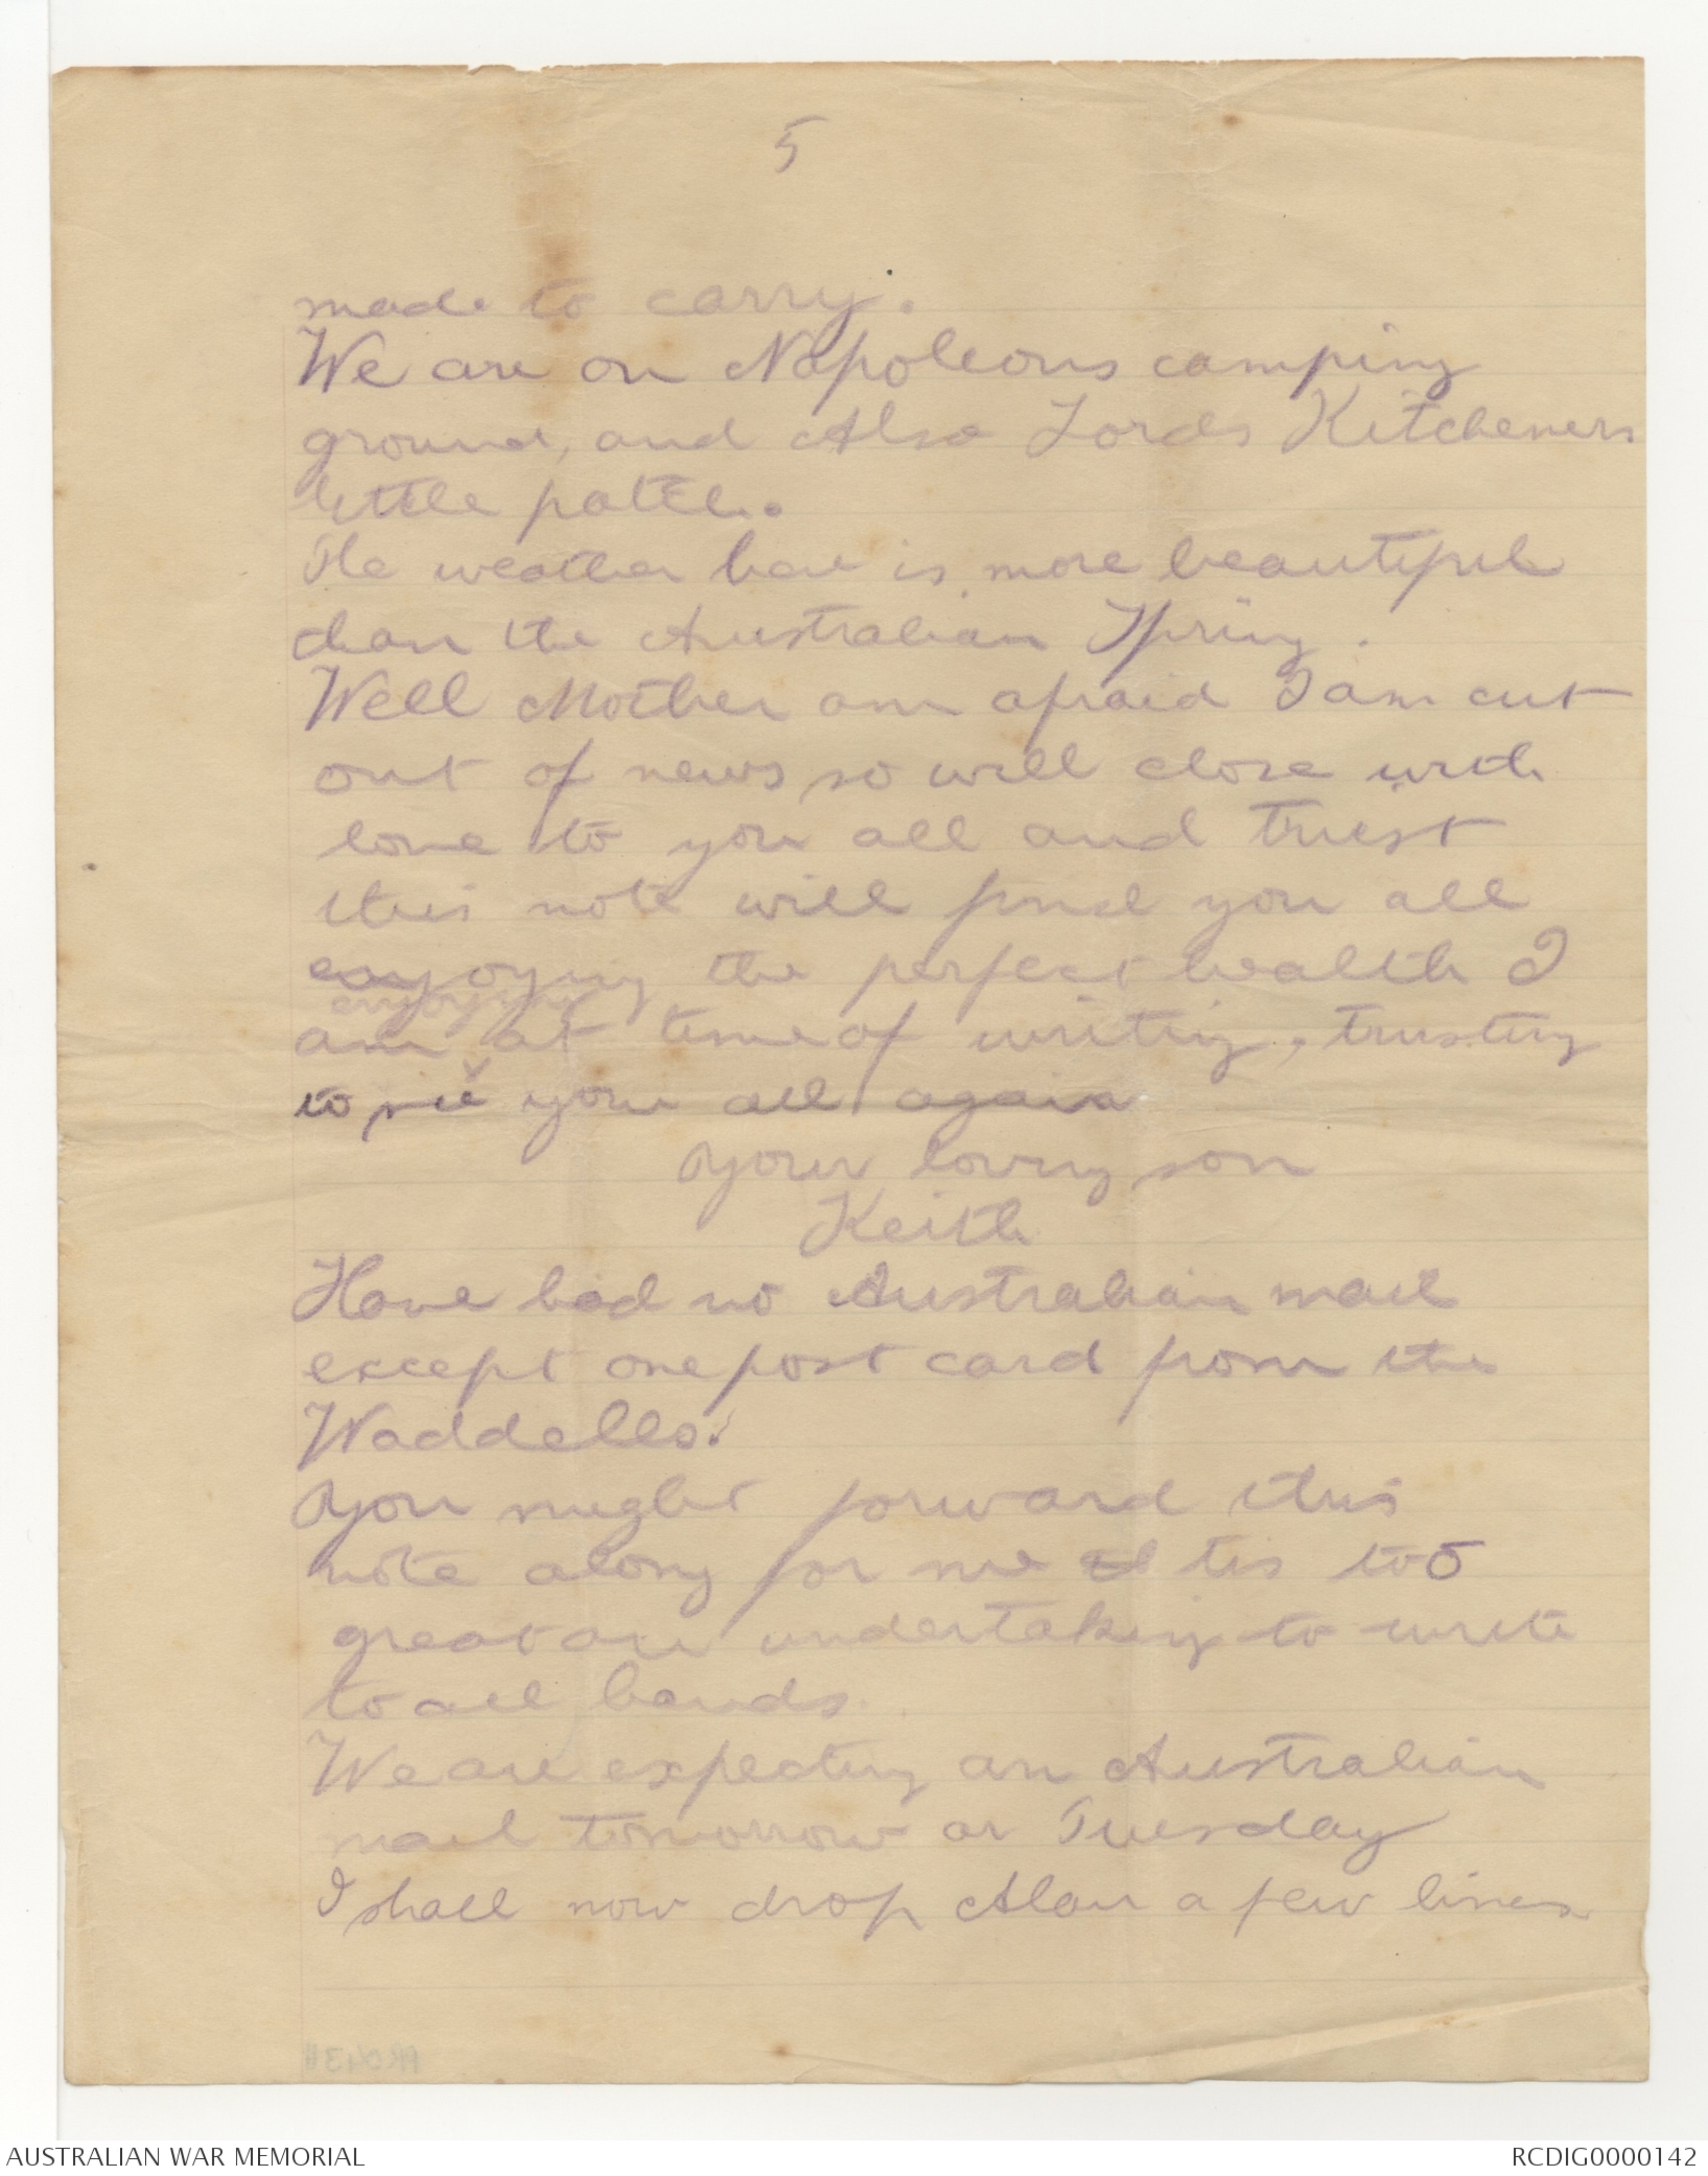 5
made to carry.
We are on Napoleons camping
ground, and Also Lords Kitcheners
little patch.
The weather here is more beautiful
than the Australian Spring.
Well Mother am afraid I am cut
out of news so will close with
love to you all and trust
this note will find you all
enjoying the perfect health I
enjoying
am at time of writing, trusting
to see you all again
Your loving son
Keith
Have had no Australian mail
except one post card from the
Waddells.
You might forward this
note along for me tis too
great an undertaking to write
to all hands.
We are expecting an Australian
mail tomorrow or Tuesday
I shall now drop Alan a few lines
AUSTRALIAN WAR MEMORIAL
RCDIG0000142